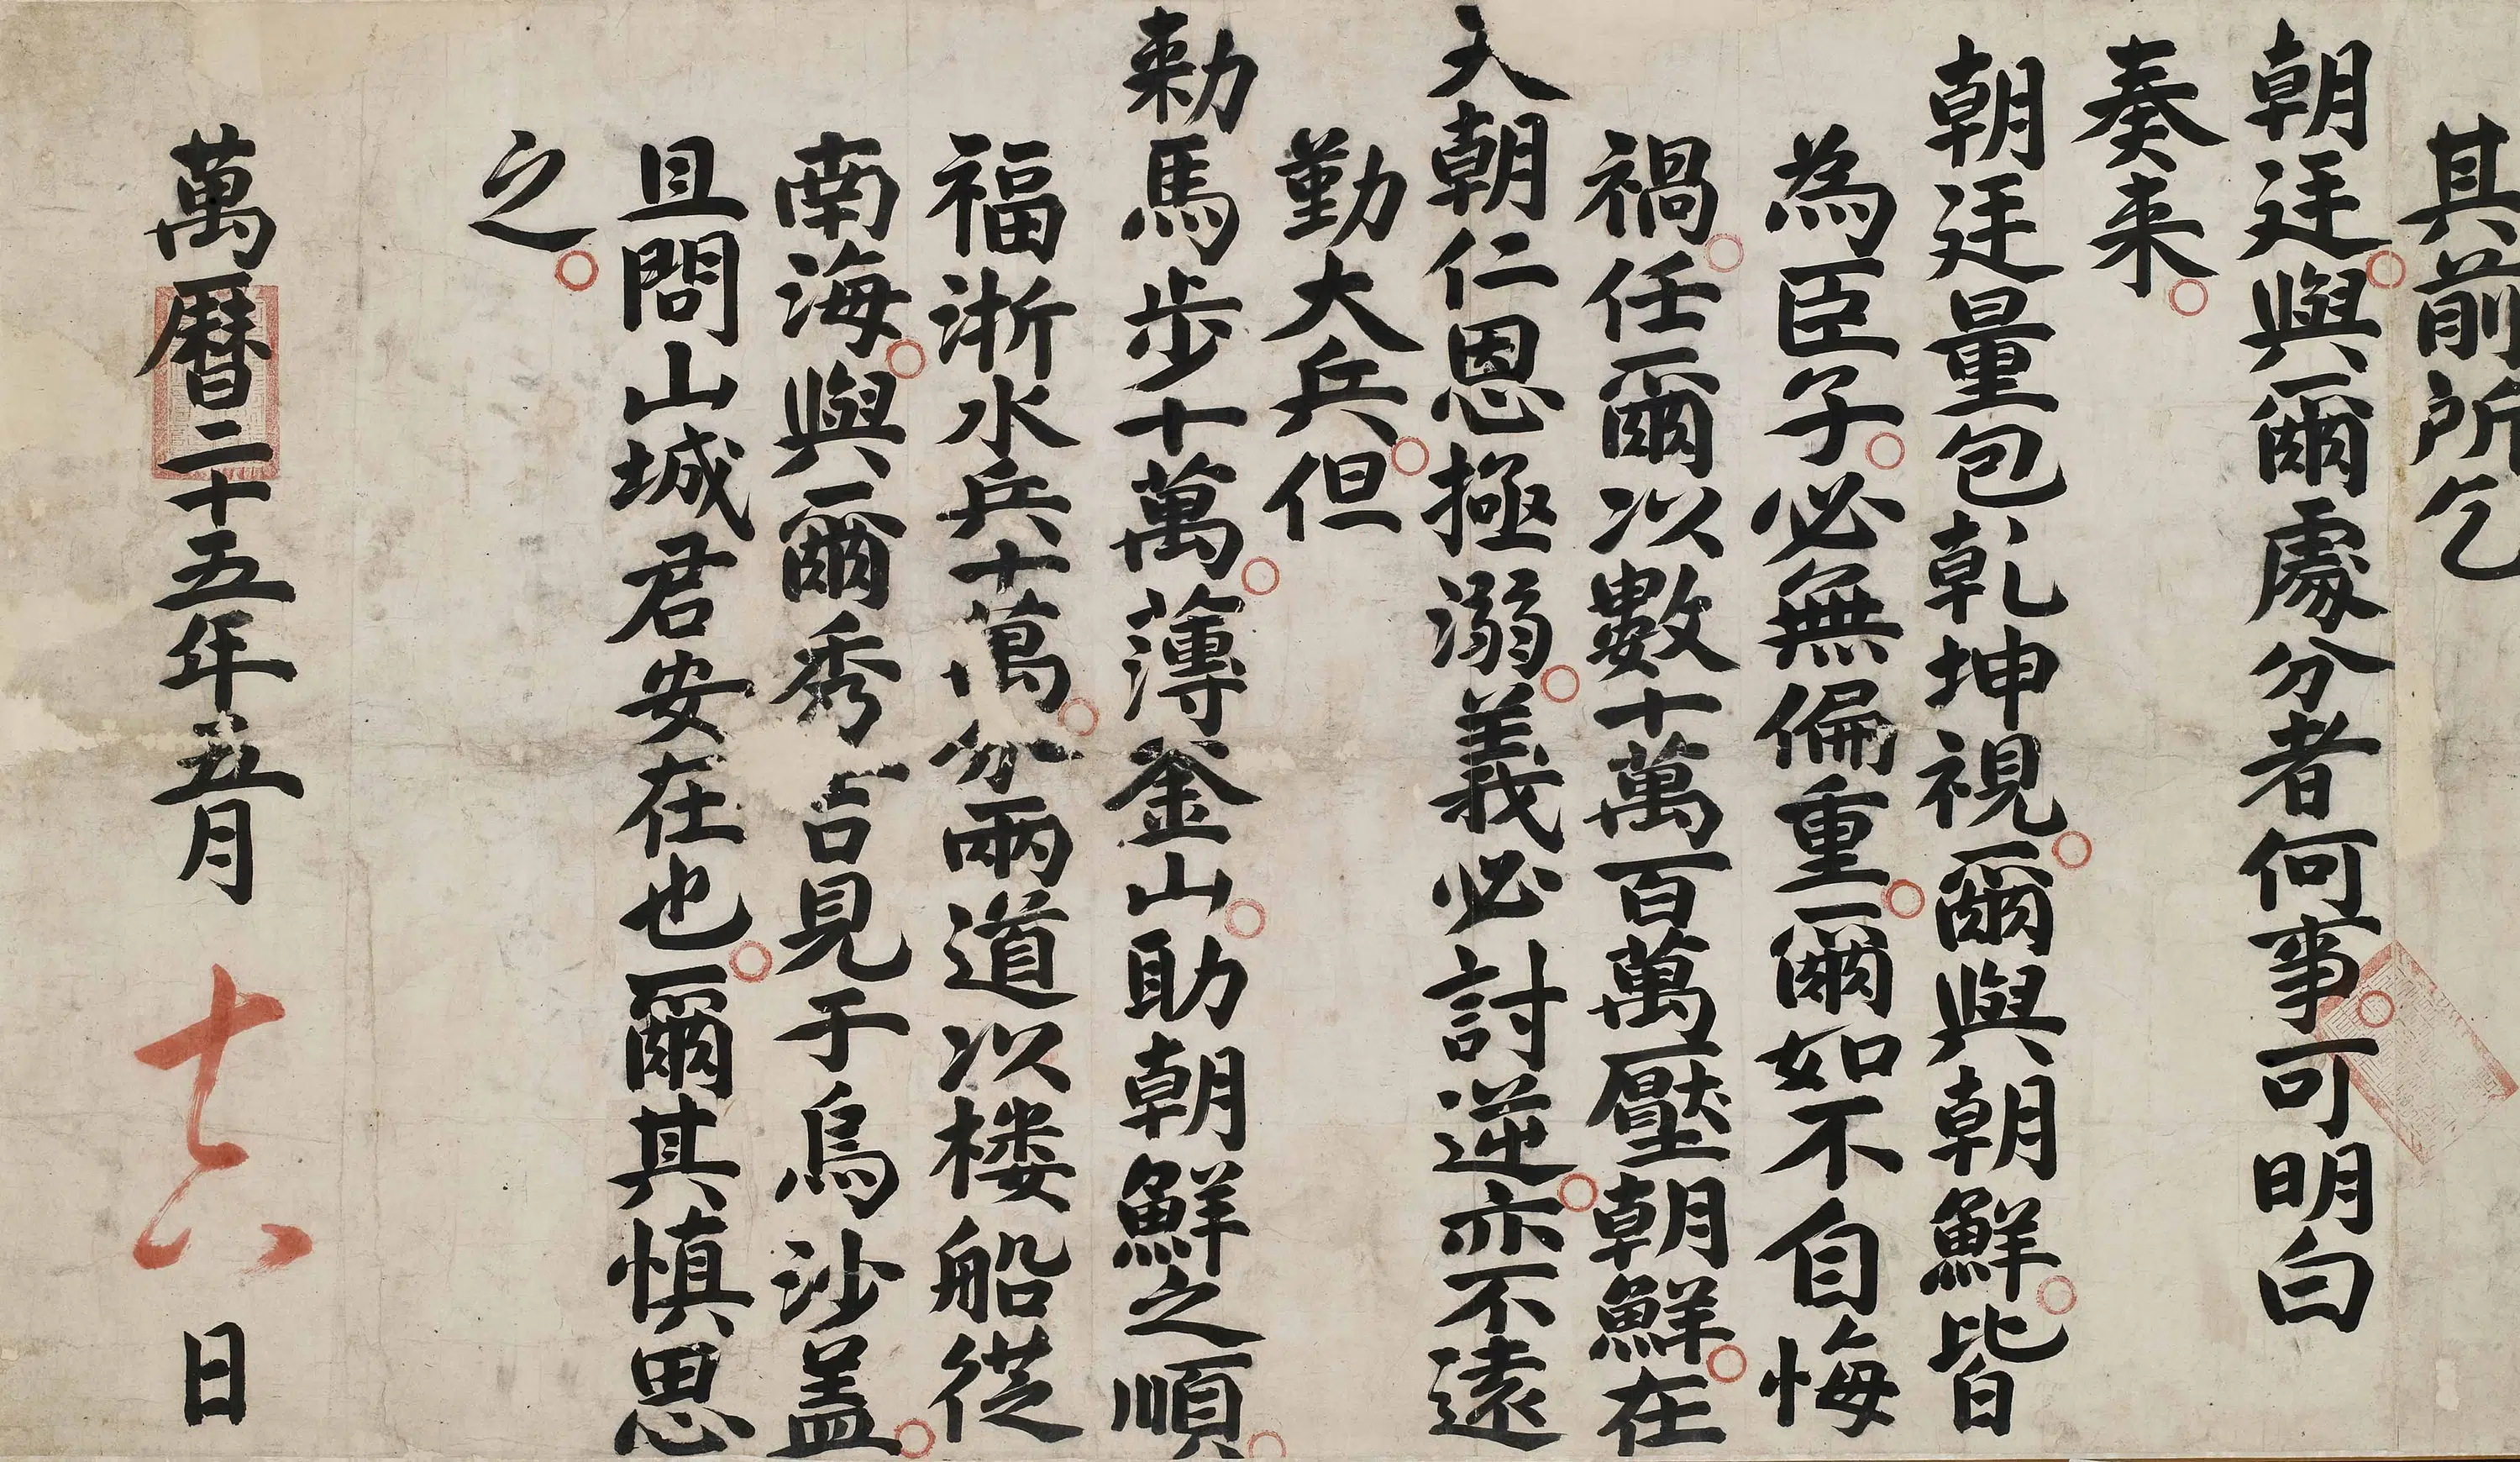 其前所乞
朝廷與爾處分者何事可明白
奏来
朝廷量包乾坤視爾與朝鮮皆
為臣子必無偏重爾如不自悔
禍任爾以數十萬百萬壓朝鮮在
天朝仁恩拯溺義必討逆亦不遠
勤大兵但
勑馬步十萬薄釜山助朝鮮之順
福浙水兵十萬分兩道以楼船從
南海與爾秀吉見于烏沙盖
且問山城君安在也爾其慎思
之
萬曆二十五年五月十六日